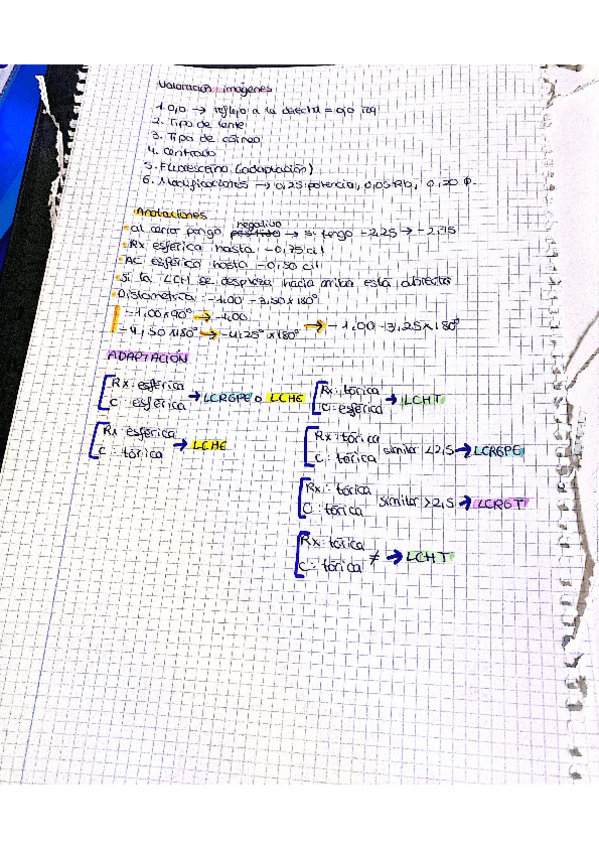 Valoración imágenes
1. 0,0 → reflejo a la derecha = ojo izq
2. Tipo de lente
3. Tipo de córnea
4. Centrado
5. Fluoresceína (adaptación)
6. Modificaciones → 0,25 potencia, 0,05 Rb, 0,20 φ.
Anotaciones
negativo
• al cerrar pongo positivo → si tengo -2,25 → -2,75
• Rx esférica hasta -0,75 cil
• AC esférico hasta -0,50 cil
• Si la LCH se desplaza hacia arriba está abierta
• Distometría: -1,00 -3,50 x 180°
-1,00 x 90° → -1,00
-4,50 x 180° → -4,25° x 180° → -1,00 -3,25 x 180°
ADAPTACIÓN
Rx: esférica
C: esférica → LCRGPE o LCHE
Rx: tórica
C: esférica → LCHT
Rx: esférica
C: tórica → LCHE
Rx: tórica
C: tórica similar <2,5 → LCRGPE
Rx: tórica
C: tórica similar >2,5 → LCRGT
Rx: tórica
C: tórica ≠ → LCHT